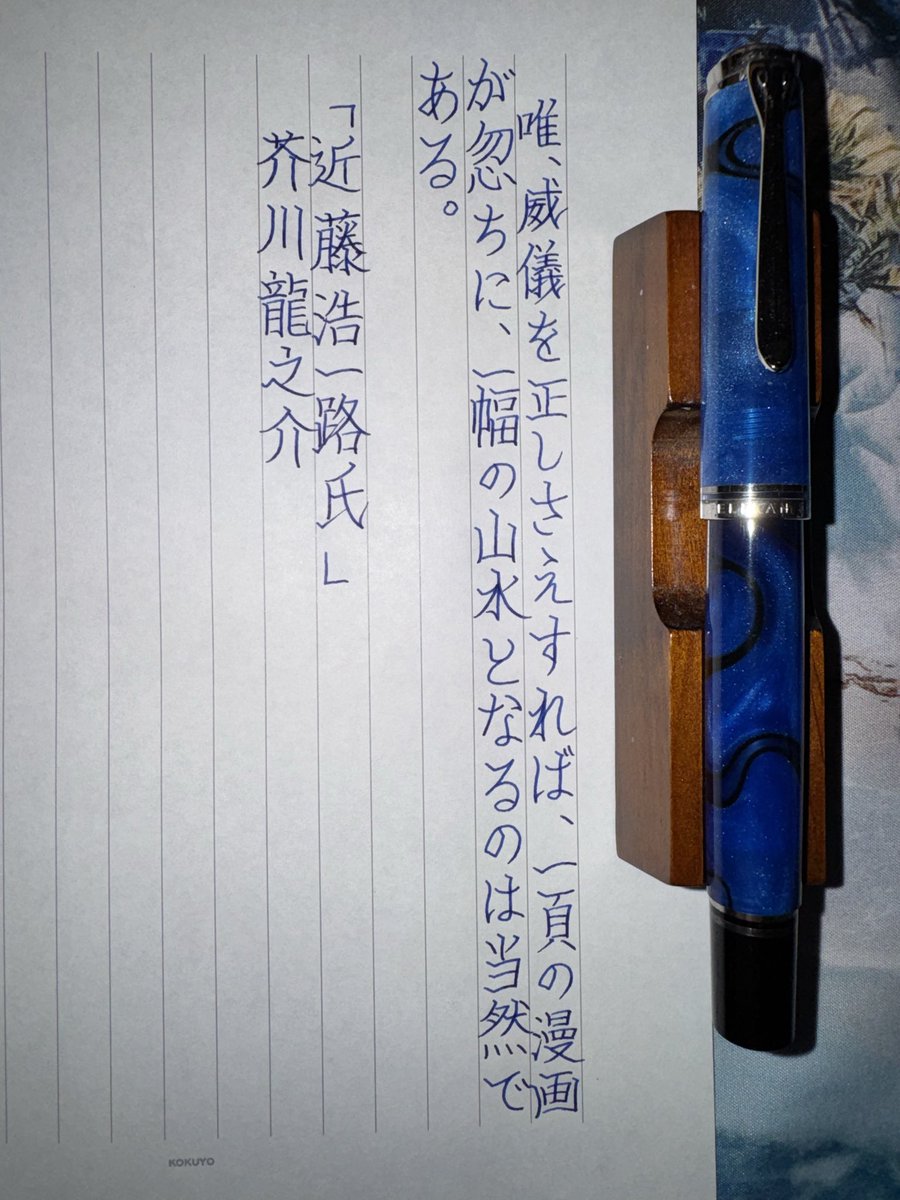 唯、威儀を正しさえすれば、一頁の漫画
が忽ちに、一幅の山水となるのは当然で
ある。
「近藤浩一路氏」
芥川龍之介
KOKUYO